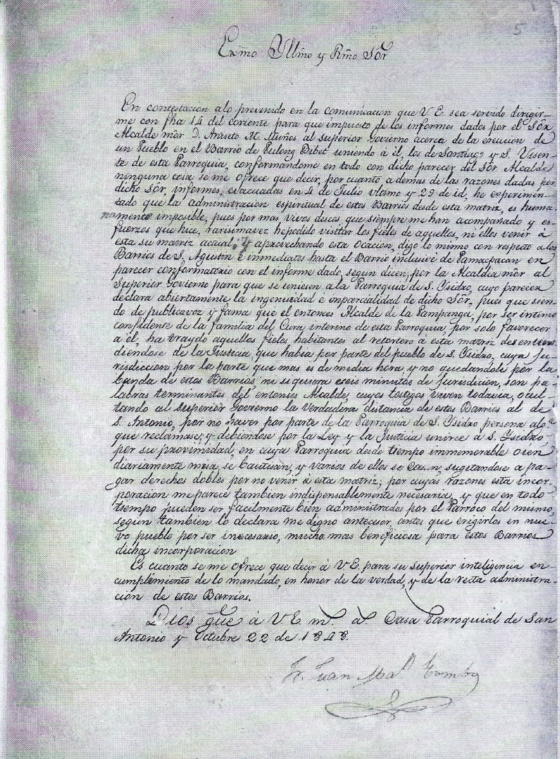 5
Exmo Yllmo y Rmo Sor
En contestacion alo prevenido en la comunicacion que V.E. sea servido dirigir-
me con fha 14 del coriente para que impuesto de los informes dados por el Sor
Alcalde mor D. M. Muñes al superior Govierno acerca de la ereccion de
un Pueblo en el Barrio de Pulong uniendo á él, los de Santiago y S. Vicen-
te de esta Parroquia, conformandome en todo con dicho parecer del Sor Alcalde
ninguna cosa se me ofrece que decir, por cuanto a demas de las razones dadas por
dicho Sor, informes, evacuadas en 4 de Julio ultimo y 23 de id, he esperimen-
tado que la administracion espiritual de estos Barrios desde esta matriz, es huma-
namente imposible, pues por mas vivos deseos que siempre me han acompañado y es-
fuerzos que hice, rarisimavez hepodido visitar los fieles de aquellos, ni ellos venir á
esta su matriz acaial, y aprovechando esta ocacion, digo lo mismo con respeto alos
Barrios de S. Agustin é inmediatos hasta el Barrio inclusive de Pamacpacan en
parecer conformatorio con el informe dado, segun dicen, por la Alcaldia mor al
Superior Govierno para que se uniesen a la Parroquia de S. Isidro, cuyo parecer
declara abiertamente la ingenuidad e imparcialidad de dicho Sor, pues que sien-
do de publicavoz y fama que el entonces Alcalde de la Pampanga, por ser intimo
confidente de la familia del Cura interino de esta Parroquia, por solo favorecer
a él, ha traydo aquellos fieles habitantes al retortero a esta matriz desenten-
diendose de la Justicia que habia por parte del pueblo de S. Isidro, cuya ju-
risdeccion por la parte que mas es de media hora, y no quedandole por la
banda de estos Barrios ni siquiera ecsis minutos de jurisdicion, son pa-
labras terminantes del entonces Alcalde, cuyos testigos viven todavia, ocul-
tando al superior Govierno la verdadera distancia de estos Barrios al de
S. Antonio, por no haver por parte de la Parroquia de S. Isidro persona al-
que reclamase, y debiendose por la Ley y la Justicia unirse á S. Isidro
por su proximidad, en cuya Parroquia desde tiempo immemorable oien
diariamente misa, se Bautizan, y varios de ellos se Casan, sugetandose a pa-
gar derechos dobles por no venir á esta matriz, por cuya razones esta incor-
poracion me parece tambien indispensablemente necesaria, y que en todo
tiempo pueden ser facilmente bien administrados por el Parroco del mismo,
segun tambien lo declara mi digno antecesor, antes que erigirlos en nue-
vo pueblo por ser inecesario, mucho mas beneficiosa para estos Barrios
dicha incorporacion
Es cuanto se me ofrece que decir á V.E. para su superior inteligencia en
cumplimiento de lo mandado, en honor de la verdad, y de la recta administra-
cion de estos Barrios.
Dios gue á V.E. m. a. Casa Parroquial de San
Antonio y Octubre 22 de 1848
Fr. Juan Mal.